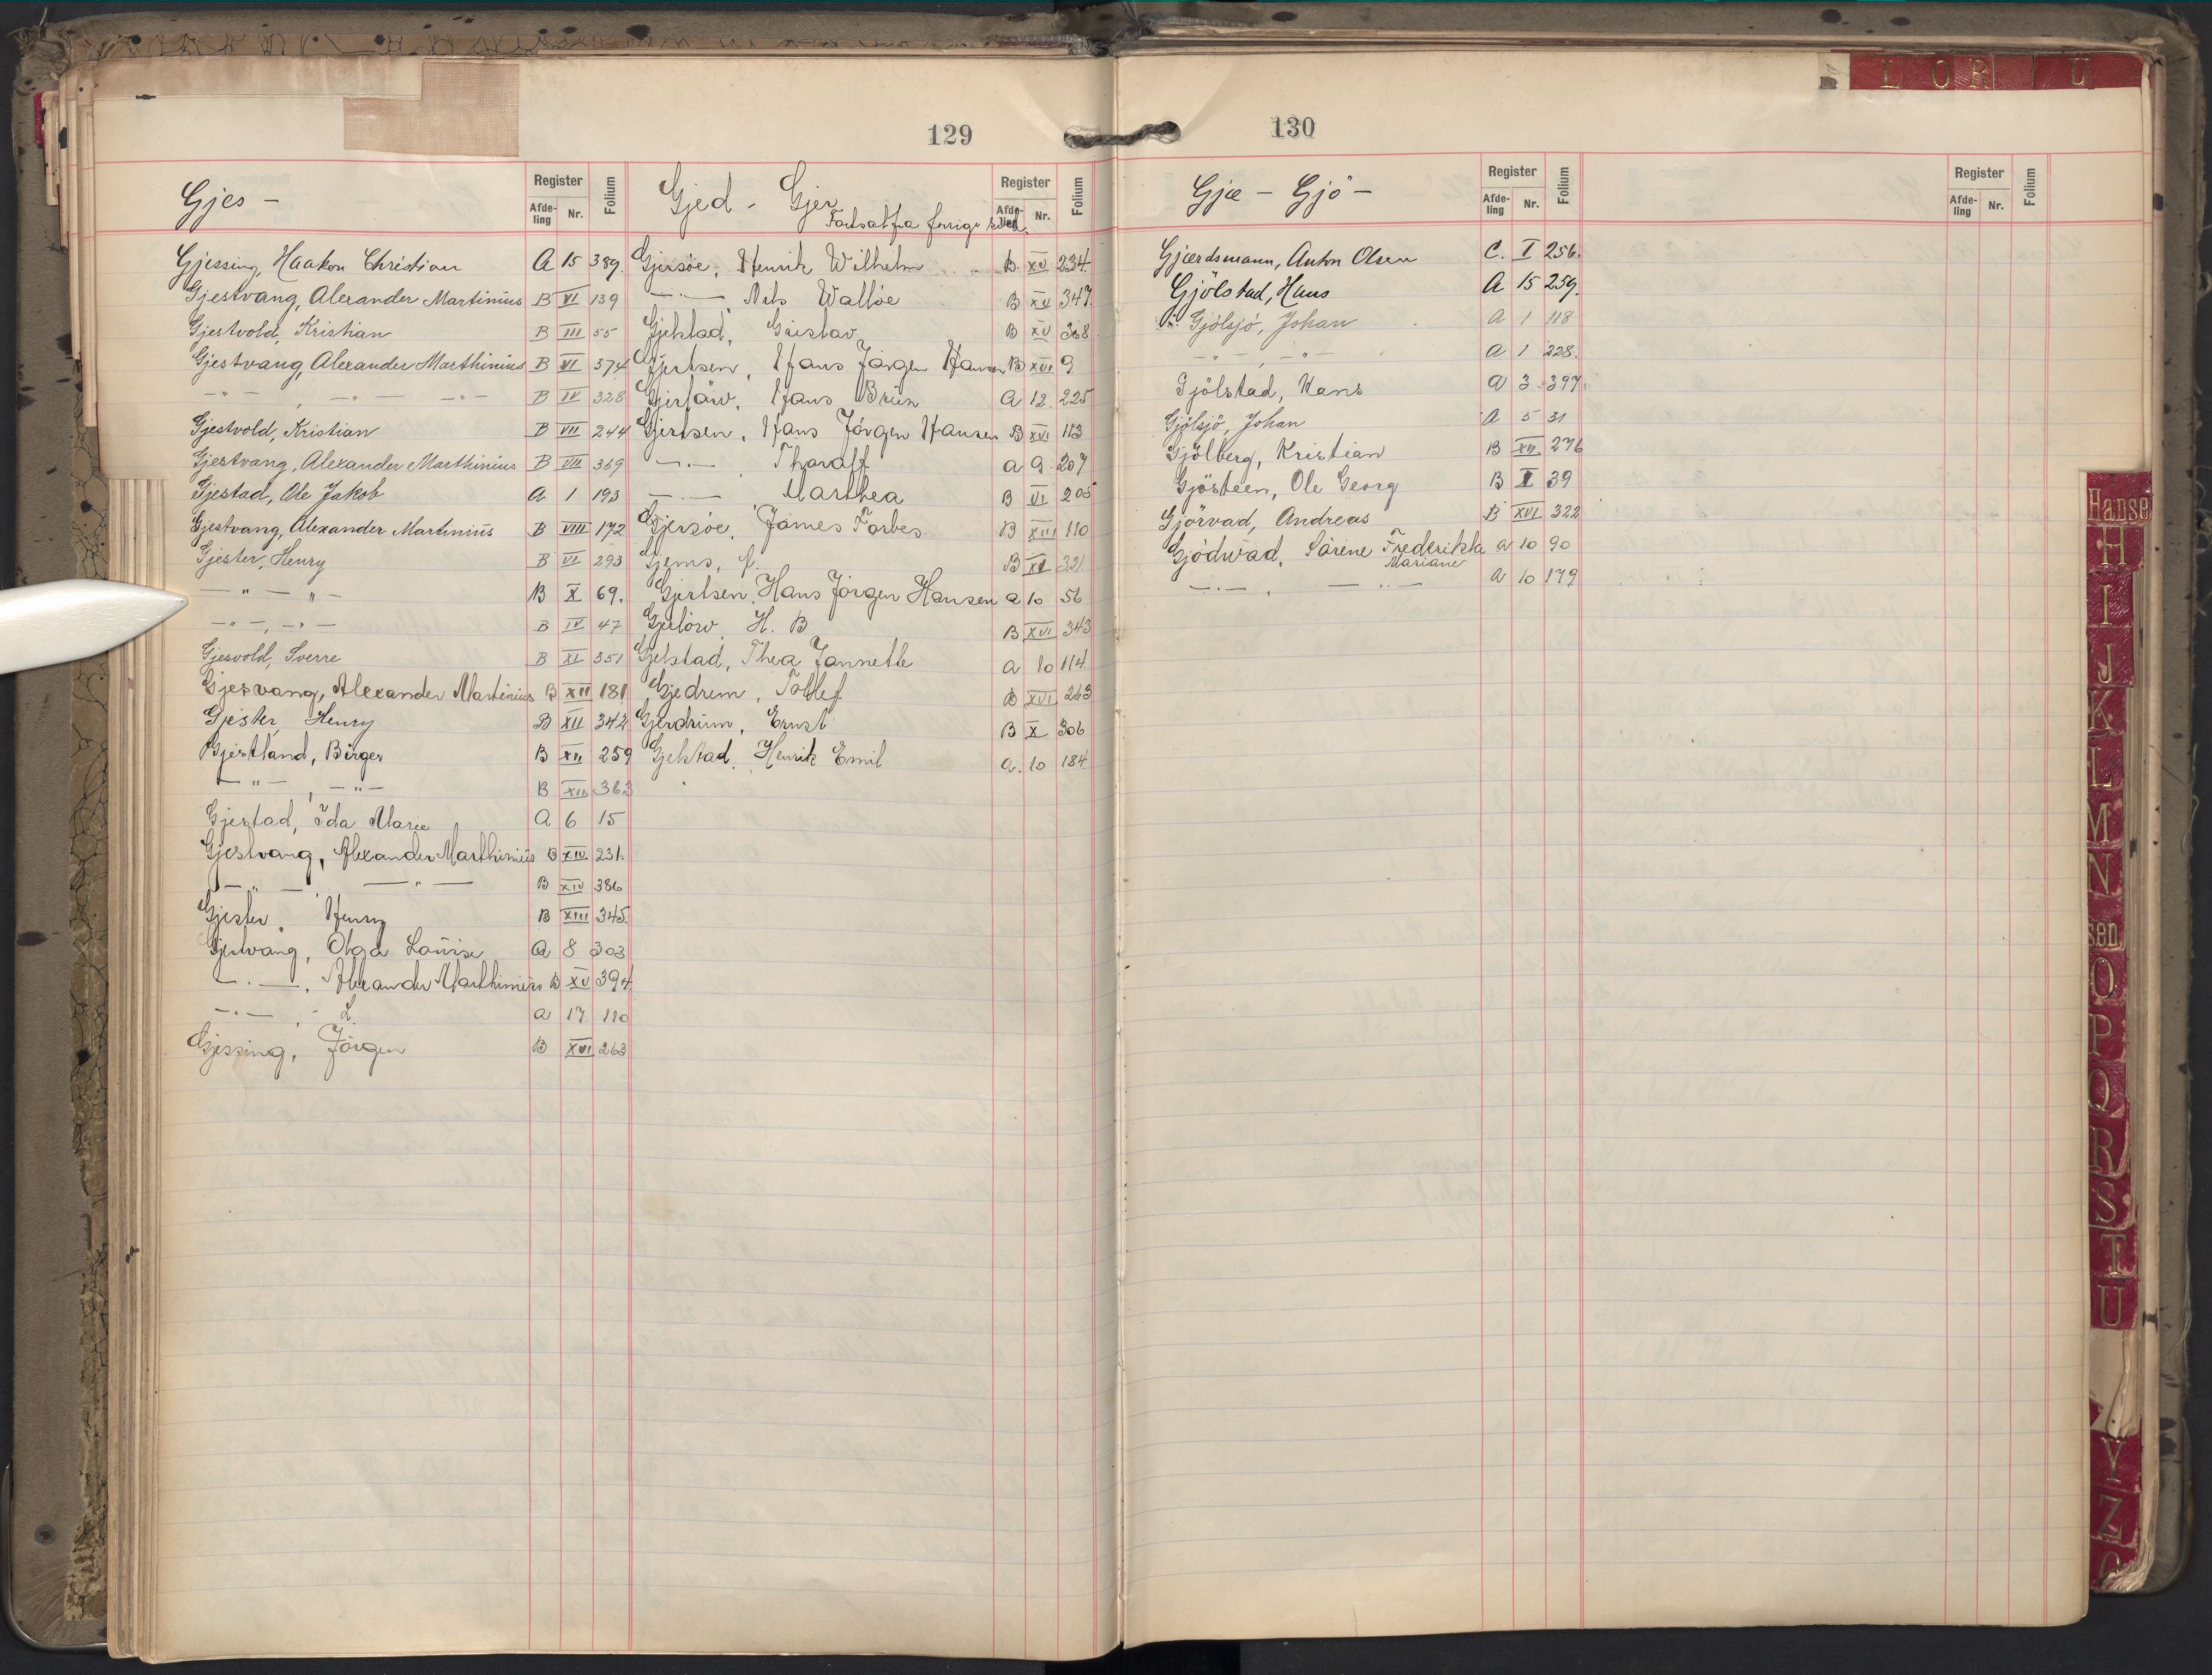 129
Gjes -
Register
Afde-ling Nr. Folium
Gjessing, Haakon Christian A 15 389.
Gjestvang, Alexander Martinius B VI 139
Gjestvold, Kristian B III 55
Gjestvang, Alexander Marthinius B VI 374
-"- , -"- -"- B IV 328
Gjestvold, Kristian B VII 244
Gjestvang, Alexander Marthinius B VIII 369
Gjestad, Ole Jakob A 1 193
Gjestvang, Alexander Martinius B VIII 172
Gjester, Henry B VI 293
-"- -"- B X 69.
-"-, -"- B IV 47
Gjesvold, Sverre B XI 351
Gjesvang, Alexander Martinius B XII 181
Gjester, Henry B XII 342
Gjestland, Birger B XII 259
-"- , -"- B XIII 363
Gjestad, Ida Marie A 6 15
Gjestvang, Alexander Marthinius B XIV 231.
-"- , -"- B XIV 386
Gjester, Henry B XIII 345.
Gjestvang, Olga Louise A 8 303
-"-, Alexander Marthinius B XV 394
-"- , L. A 17 110
Gjessing, Jörgen B XVI 263
Gjed - Gjer
Fortsat fra forrige
Register
Afde-ling Nr. Folium
Gjersöe, Henrik Wilhelm B XV 234.
-"- , Nils Wallöe B XV 347.
Gjelstad, Gustav B XV 368
Gjertsen, Hans Jörgen Hansen B XVI 9
Gjerlöw, Hans Brun A 12 225
Gjertsen, Hans Jörgen Hansen B XVI 113
-"- , Tharalf A 9 207
-"- , Marthea B VI 205
Gjersöe, James Forbes B XIII 110
Gjems, B XI 321
Gjertsen, Hans Jörgen Hansen a 10 56
Gjerlöw, H. B B XVI 343
Gjelstad, Thea Jannette A 10 114.
Gjedrem, Tollef B XVI 263
Gjerdrum, Ernst B X 306
Gjelstad, Henrik Emil a. 10 184.
130
Gjæ - Gjö -
Register
Afde-ling Nr. Folium
Gjærdsmann, Anton Olsen C. I 256.
Gjölstad, Hans A 15 259.
Gjölsjö, Johan A 1 118
-"- , -"- A 1 228.
Gjölstad, Hans A 3 397.
Gjölsjö, Johan A 5 31
Gjölberg, Kristian B XII 276
Gjösteen, Ole Georg B X 39
Gjörvad, Andreas B XVI 322
Gjödwad, Sörine Frederikka Mariane A 10 90
-"- , -"- A 10 179
Register
Afde-ling Nr. Folium
L OR U
Hanse
H
I
J
K
L
M
N
sen
O
P
Q
R
S
T
U
Y
Z